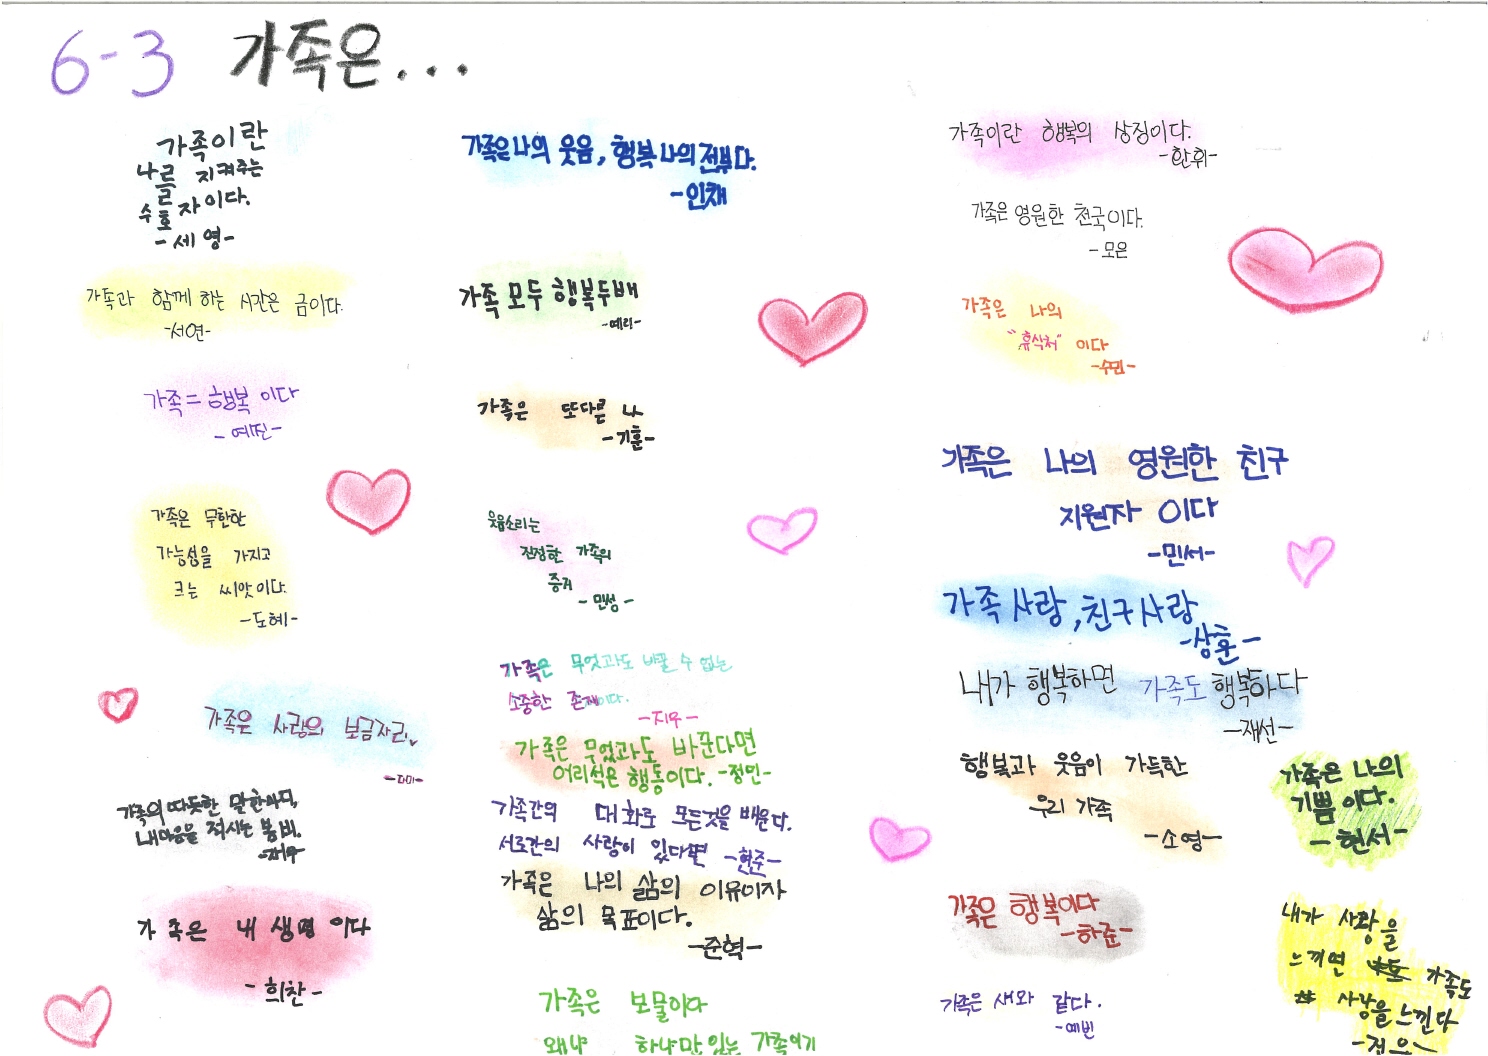 6-3 가족은...
가족이란
나를 지켜주는
수호자이다.
-세영-
가족과 함께 하는 시간은 금이다.
-서연-
가족=행복 이다
-예진-
가족은 무한한
가능성을 가지고
크는 씨앗이다.
-도혜-
가족은 사랑의 보금자리
-다미-
가족의 따뜻한 말한마디,
내마음을 적시는 봄비.
가족은 내 생명 이다
-희찬-
가족은 나의 웃음, 행복 나의 전부다.
-인채
가족 모두 행복두배
-예리-
가족은 또다른 나
-기훈-
웃음소리는
진정한 가족의
증거
-민성-
가족은 무엇과도 바꿀 수 없는
소중한 존재이다.
-지우-
가족은 무엇과도 바꾼다면
어리석은 행동이다. -정민-
가족간의 대화로 모든것을 배운다.
서로간의 사랑이 있다면 -현준-
가족은 나의 삶의 이유이자
삶의 목표이다.
-준혁-
가족은 보물이다
왜냐 하나만 있는 가족이기
가족이란 행복의 상징이다.
-한휘-
가족은 영원한 천국이다.
-모은
가족은 나의
"휴식처" 이다
-수민-
가족은 나의 영원한 친구
지원자 이다
-민서-
가족 사랑, 친구사랑
-상훈-
내가 행복하면 가족도 행복하다
-재선-
행복과 웃음이 가득한
우리 가족
-소영-
가족은 나의
기쁨이다.
-현서-
가족은 행복이다
-하준-
가족은 새와 같다.
-예빈
내가 사랑을
느끼면 가족도
사랑을느낀다